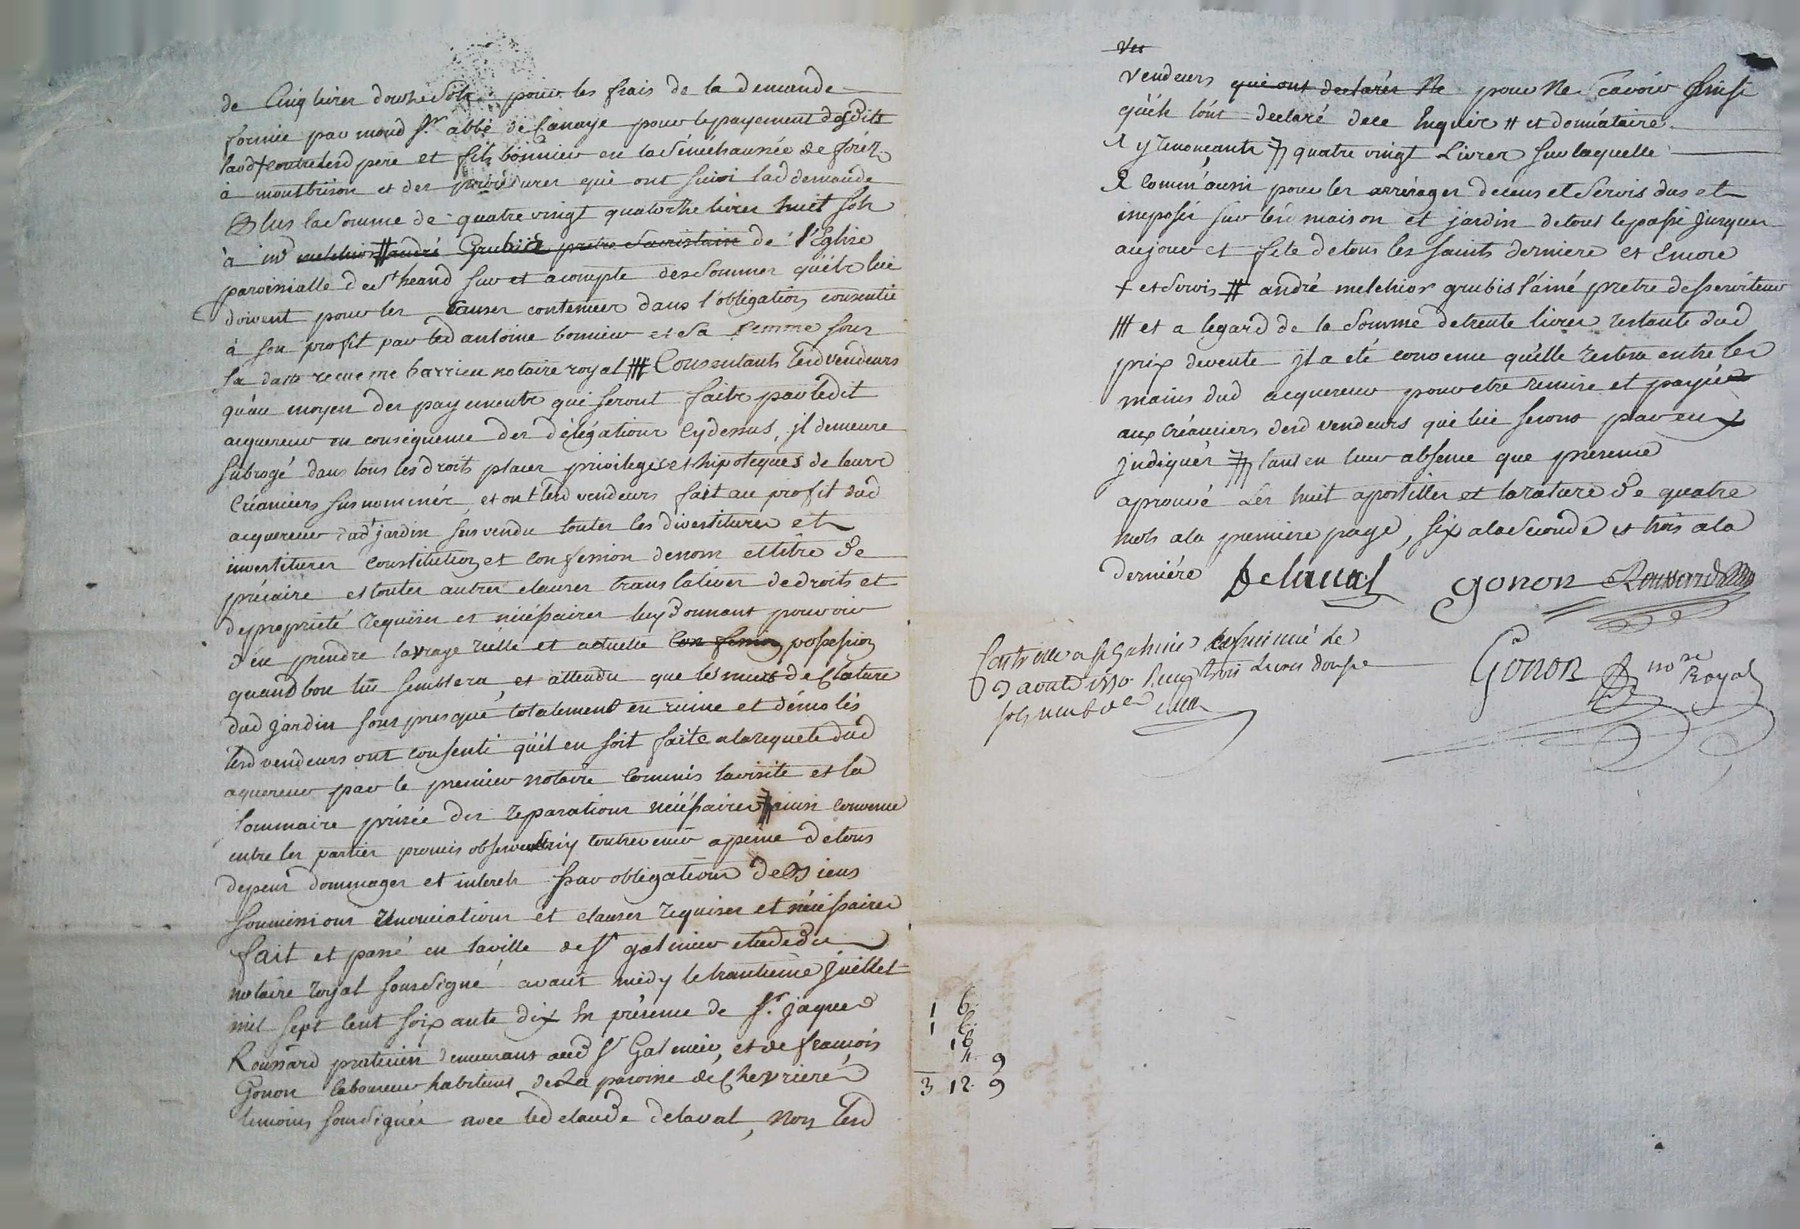 de Cinq livres douze sols pour les frais de la demande
formée par mond sr. abbé de Canaye pour le payement desdits
laod + contre lesd pere et fils bonnier en la sénéchaussée de foréz
à montbrison et des procedures qui ont suivi lad demande
Plus la somme de quatre vingt quatorze livres huit sols
à md melchior # andré Grubis pretre sacristain de l'Eglise
paroissialle de st heand sur et acompte des sommes qu'ils lui
doivent pour les causes contenues dans l'obligation consentie
à son profit par led antoine bonnier et sa femme sous
sa datte recue me barrieu notaire royal ||| Consentants lesd vendeurs
qu'au moyen des payements qui seront faits par ledit
acquereur en conséquence des délégations cydessus, jl demeure
subrogé dans tous les droits places privileges et hipoteques de leurs
Créanciers susnommés, et ont lesd vendeurs fait au profit dud
acquereur dud jardin sus vendu toutes les divestitures et
investitures constitution et confession de nom et titre de
précaire et toutes autres clauses translatives de droits et
de propriété requises et nécessaires luy donnant pouvoir
d'en prendre la vraye réelle et actuelle confession possession
quand bon lui semblera, et attendu que les murs de Cloture
dud jardin sont presque totalement en ruine et démolis
lesd vendeurs ont consenti qu'il en soit faite a la requete dud
aquereur par le premier notaire commis la visite et la
sommaire prisée des reparations nécéssaires ainsi convenu
entre les parties promis observer n'y contrevenir a peine de tous
depens dommages et interets par obligation de biens
soumissions renonciations et clauses requises et nécéssaires
fait et passé en la ville de st galmier etude du
notaire royal soussigné avant midy le trantieme juillet
mil sept cent soixante dix En présence de sr. jaques
Roussard praticien demeurant aud st Galmier, et de francois
Gonon laboureur habitant de la paroisse de Chevrieres
témoins soussignés avec led claude delaval, Non lesd
ves
vendeurs qui ont declarés Ne pour Ne scavoir sinsi
qu'ils l'ont declaré de ce Enquis # et donnataire.
1 y renoncants quatre vingt Livres sur laquelle
comm'aussi pour les arrérages de cens et servis dus et
imposés sur lesd maison et jardin de tout le passé jusques
aujour et fete de tous les saints derniere et Encore
+ et servis # andré melchior grubis l'ainé pretre desserviteur
||| et a legard de la somme de trente livres restante dud
prix de vente jl a été convenu quelle restera entre les
mains dud acquereur pour etre remise et payée
aux créanciers desd vendeurs qui lui seront par eux
jndiqués tant en leur absence que présence
aprouvé Les huit apostilles et la rature De quatre
mots a la premiere page, six a la seconde et trois a la
derniére Delaval Gonon Roussard
Gonon no.re Royal
Controllé a st Galmier et insinué le
9 août 1770 Recu trois Livres douze
sols neuf d.ers
1 6.
1 6.
16
11. 9
3 12. 9